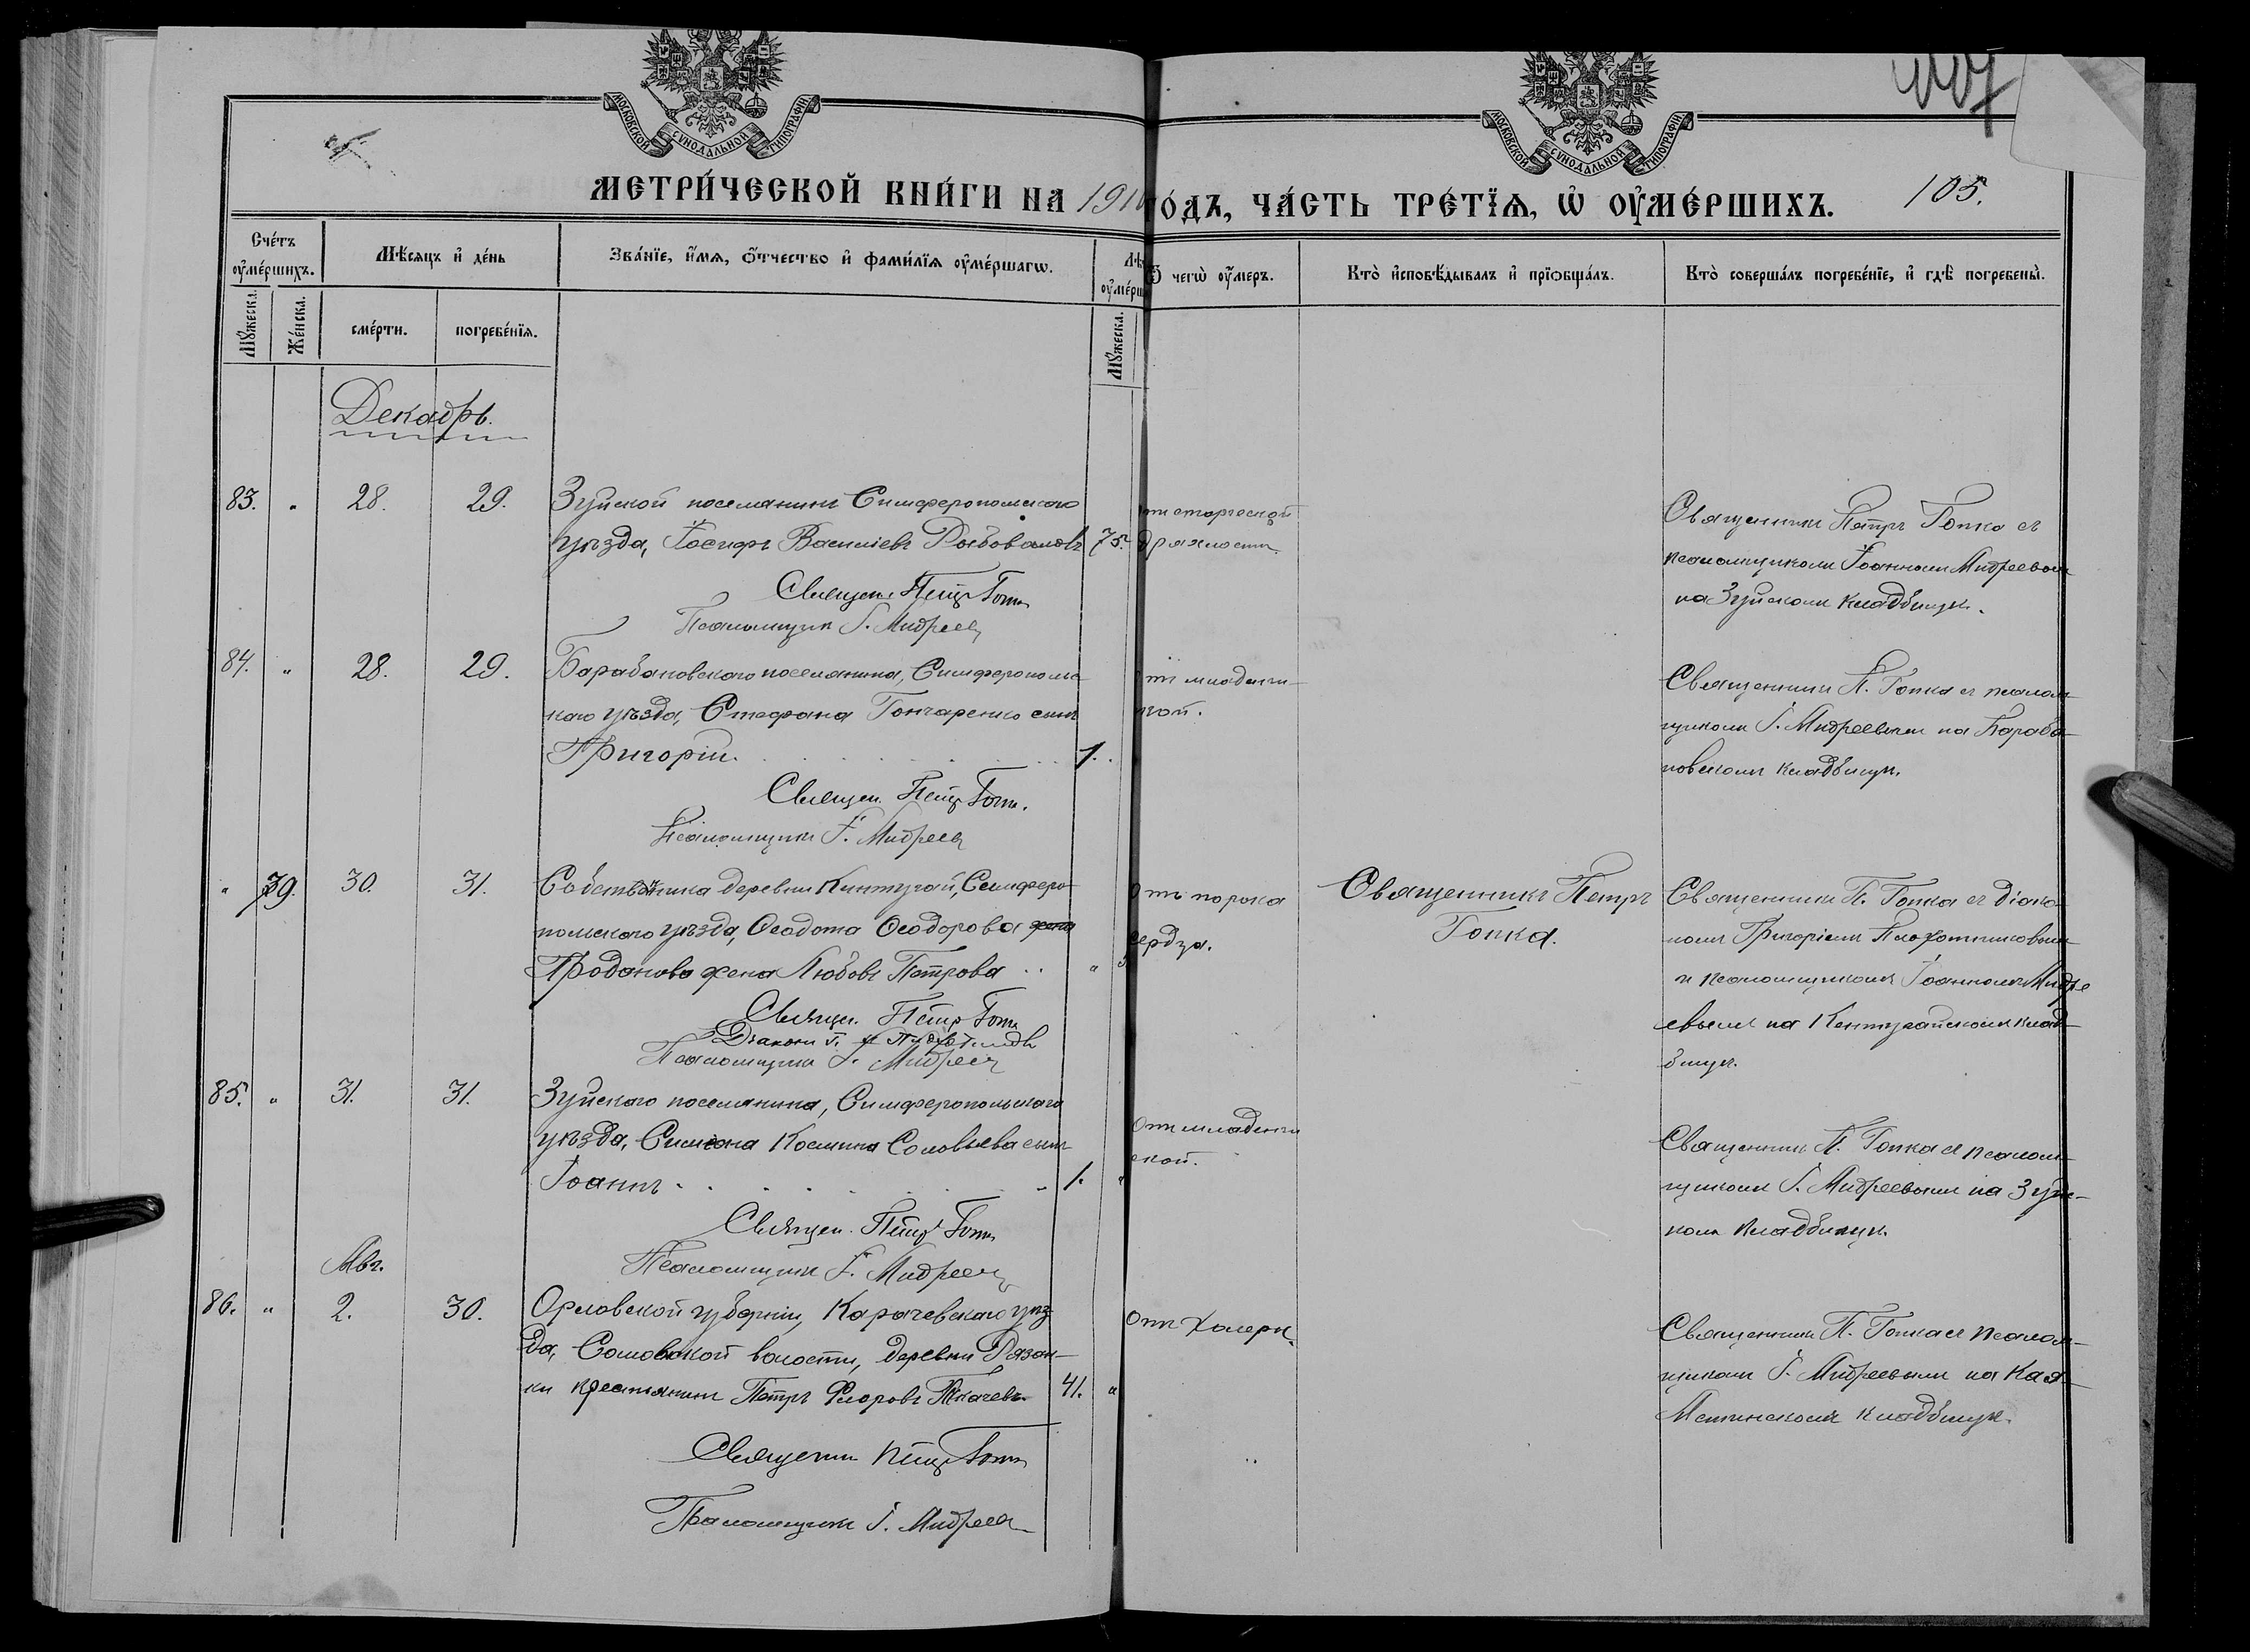 МОСКОВСКОЙ СѴНОДАЛЬНОЙ ТИПОГРАФІИ
МОСКОВСКОЙ СѴНОДАЛЬНОЙ ТИПОГРАФІИ
МЕТРИ́ЧЕСКОЙ КНИ́ГИ НА 1910
ГО́ДЪ, ЧА́СТЬ ТРЕ́ТЇѦ, Ѡ҆ ОУ҆МЕ́РШИХЪ.
105.
Сче́тъ оу҆ме́ршихъ.
Мѣ́сяцъ и҆ де́нь
Зва́нїе, и҆́мѧ, ѻ҆́тчество и҆ фами́лїѧ оу҆ме́ршагѡ.
Ѿ чегѡ̀ оу҆́меръ.
Кто̀ и҆сповѣ́дывалъ и҆ прїѻбща́лъ.
Кто̀ соверша́лъ погребе́нїе, и҆ гдѣ̀ погребены̀.
Мꙋ́жеска.
Же́нска.
сме́рти.
погребе́нїѧ.
Мꙋ́жеска.
Декабрь.
83. " 28. 29. Зуйской поселянинъ Симферопольскаго
уѣзда, Іосифъ Василіевъ Рыбоваловъ 75.
Священ. Петръ Гопка
Псаломщикъ І. Андреевъ
отъ старческой
дряхлости.
Священникъ Петръ Гопка съ
псаломщикомъ Іоанномъ Андреевымъ
на Зуйскомъ кладбищѣ.
84. " 28. 29. Барабановскаго поселянина, Симферополь-
скаго уѣзда, Стефана Гончаренко сынъ
Григорій. 1.
Священ. Петръ Гопка.
Псаломщикъ І. Андреевъ
отъ младенче-
ской.
Священникъ П. Гопка съ псалом-
щикомъ І. Андреевымъ на Бараба-
новскомъ кладбищѣ.
" 39. 30. 31. Собственника деревни Кинтугай, Симферо-
польскаго уѣзда, Ѳеодота Ѳеодорова жена
Проданова жена Любовь Петрова "
Священ. Петръ Гопка
Діаконъ Г. Плохотниковъ
Псаломщикъ І. Андреевъ
Отъ порока
сердца.
Священникъ Петръ
Гопка.
Священникъ П. Гопка съ діако-
номъ Григоріемъ Плохотниковымъ
и псаломщикомъ Іоанномъ Андре
евымъ на Кентугайскомъ клад-
бищѣ.
85. " 31. 31. Зуйскаго поселянина, Симферопольскаго
уѣзда, Симеона Косьмина Соловьева сынъ
Іоаннъ 1. "
Священ. Петръ Гопка
Псаломщикъ І. Андреевъ
отъ младенче
ской.
Священникъ П. Гопка съ псалом-
щикомъ І. Андреевымъ на Зуй-
комъ кладбищѣ.
Авг.
86. " 2. 30. Орловской губерніи, Карачевскаго уѣз-
да, Самовской волости, деревни Рязан-
ки крестьянинъ Петръ Флоровъ Ткачевъ 41. "
Священник Петръ Гопка
Псаломщикъ І. Андреевъ
Отъ холеры.
Священникъ П. Гопка съ псалом-
щикомъ І. Андреевымъ на Кая-
Астинскомъ кладбищѣ.